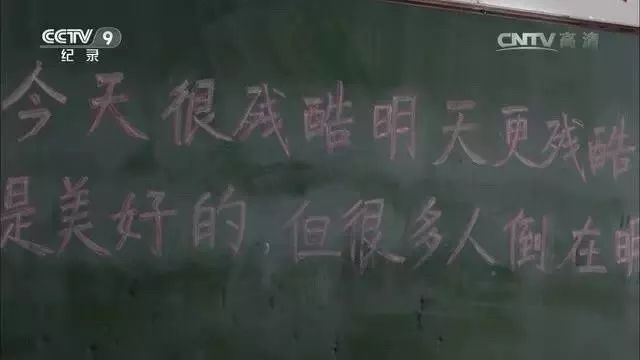 CCTV 9
纪录
CNTV 高清
今天很残酷明天更残酷
是美好的,但很多人倒在明